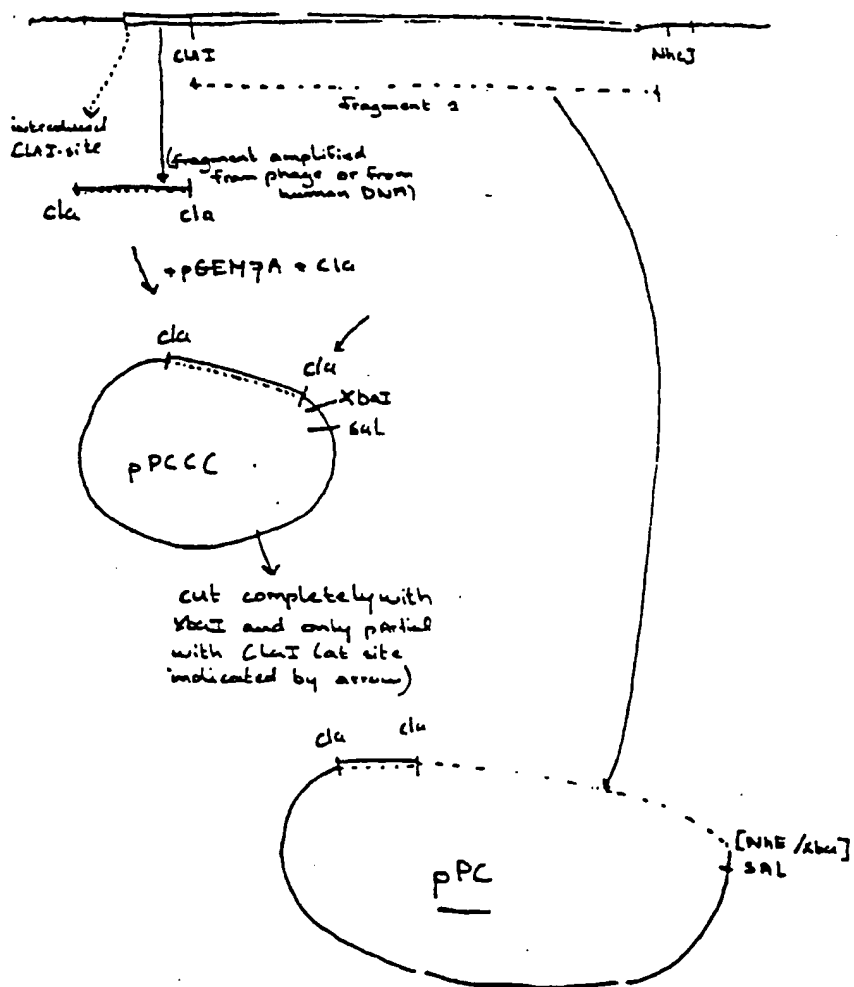 ClaI
NheI
fragment 2
introduced
ClaI-site
(fragment amplified
from phage or from
human DNA)
cla
cla
+pGEM7A + Cla
cla
cla
XbaI
sal
pPCCC
cut completely with
XbaI and only partial
with ClaI (at site
indicated by arrow)
cla
cla
[NhE/Xba]
SAL
pPC